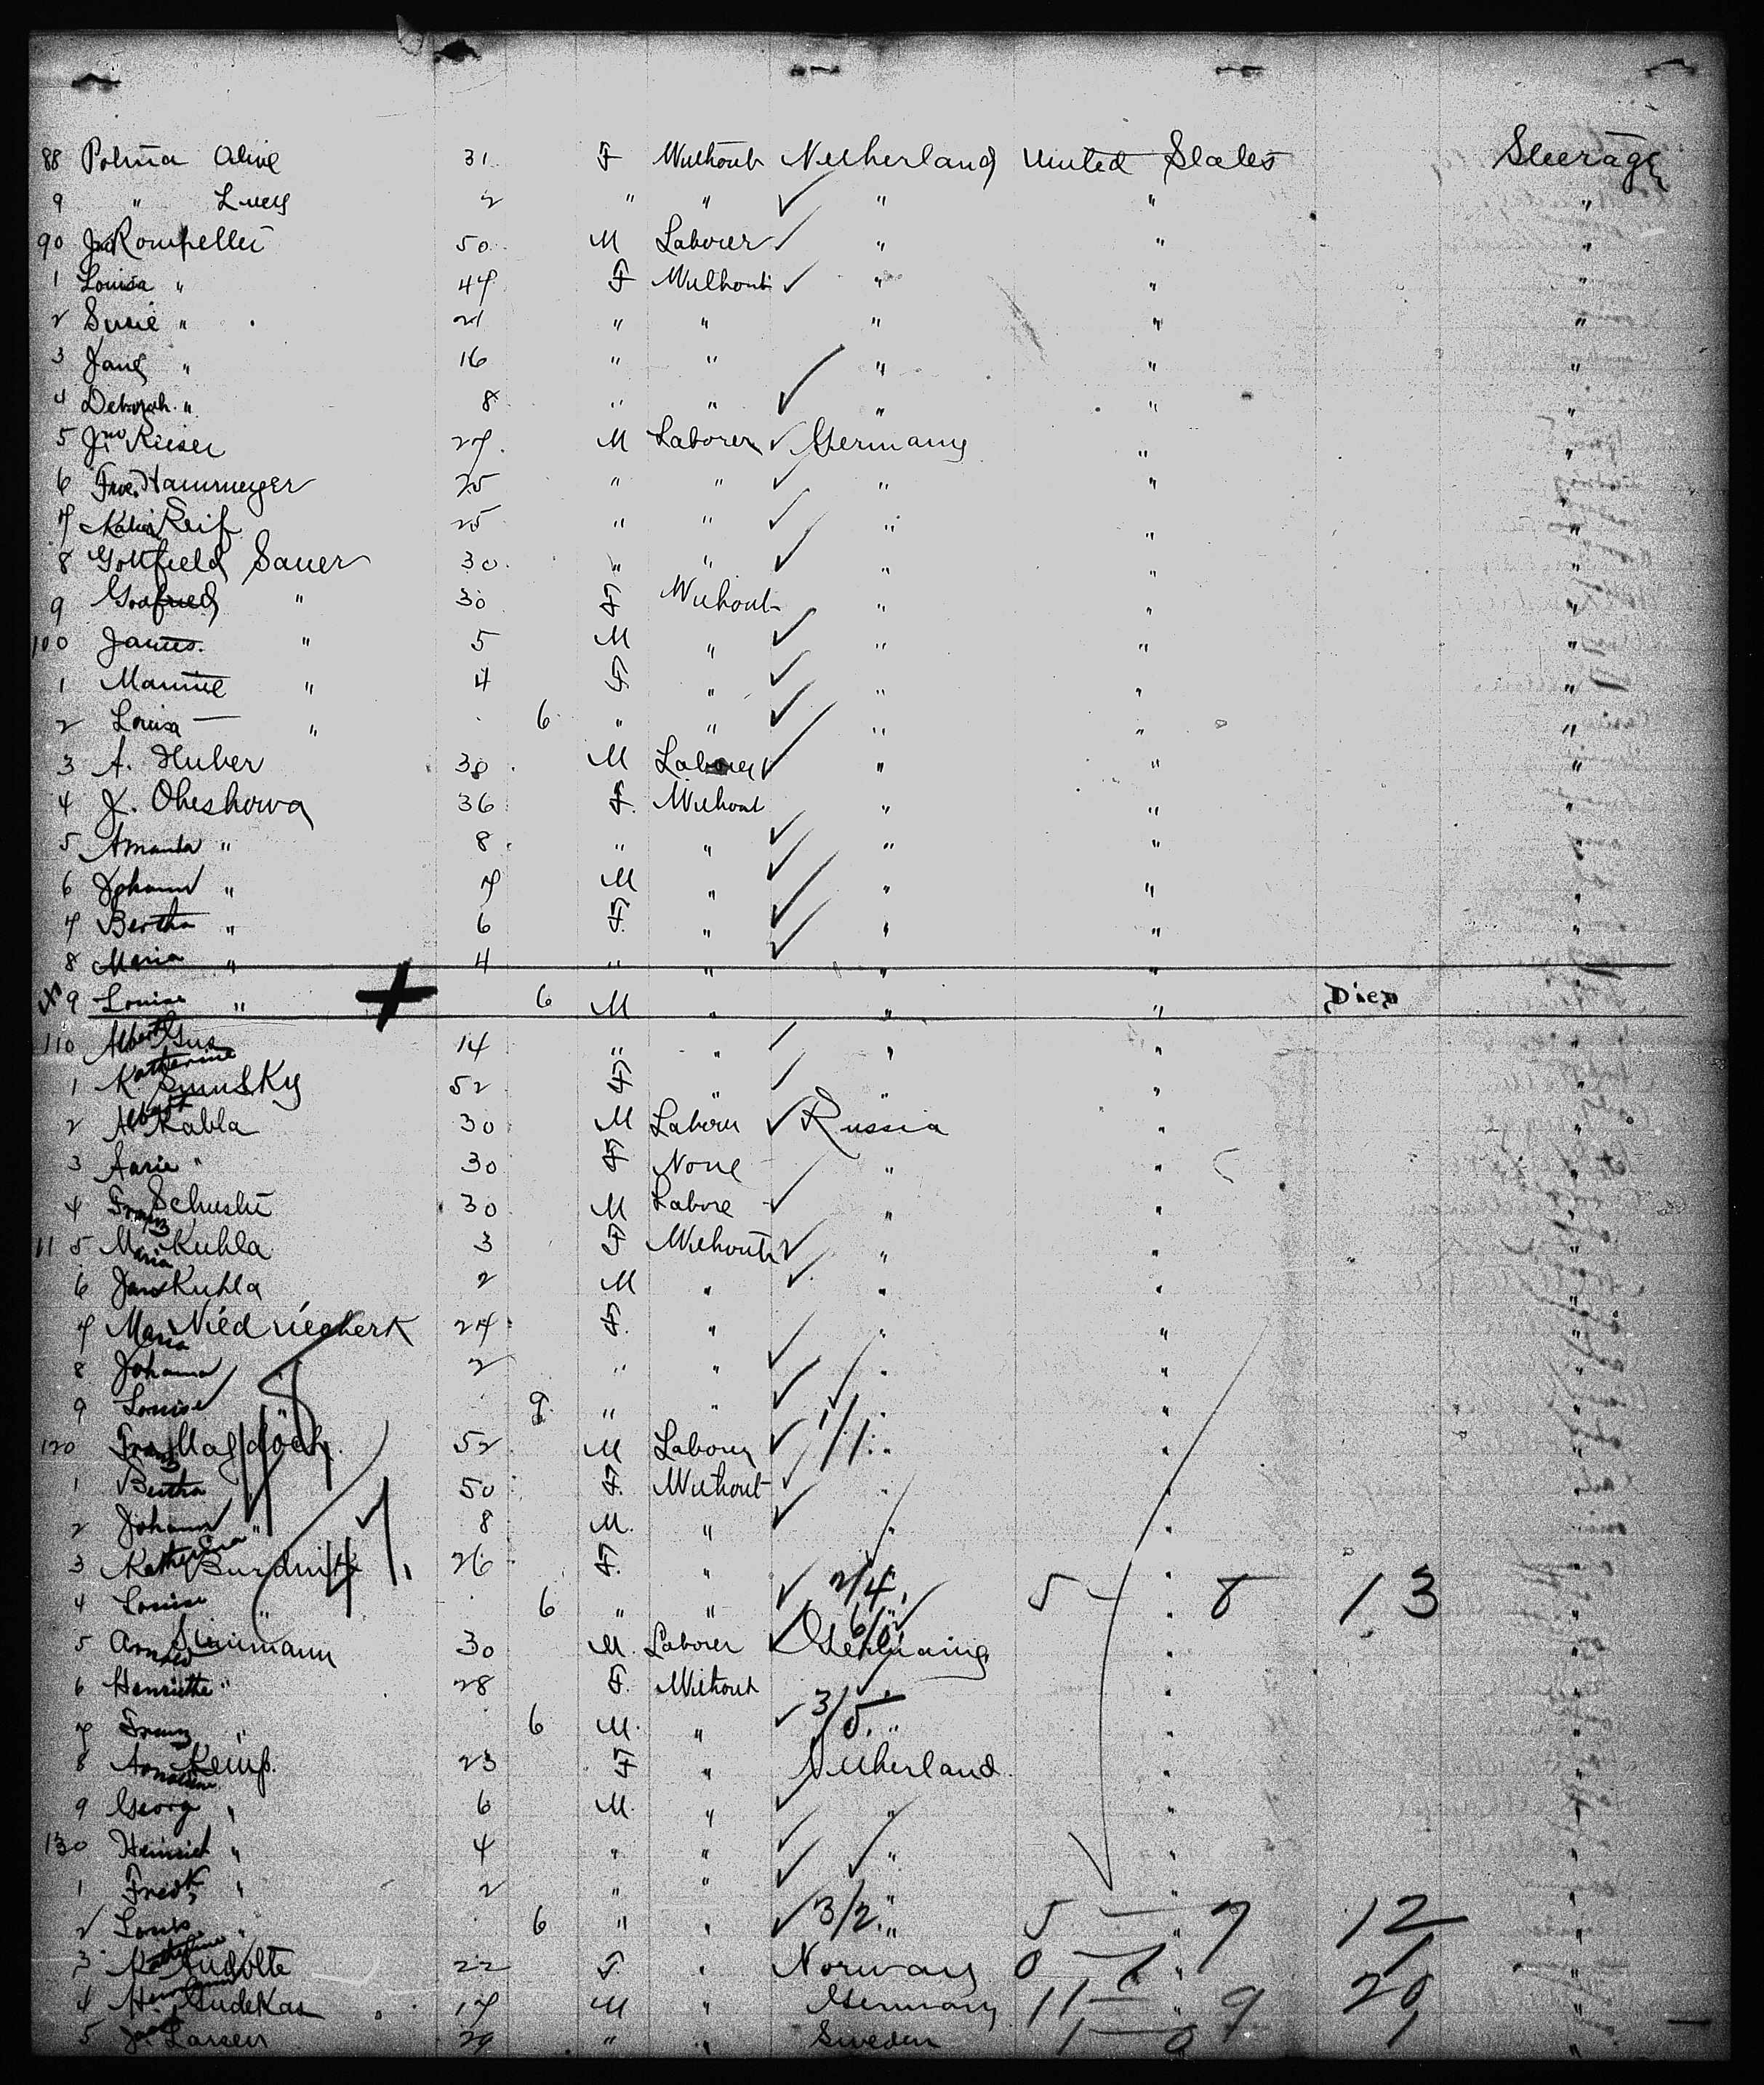 88 Polma Alive 31 F Without Netherland United States Steerage
9 " Lucy 2 " " " " "
90 Jno Rompellei 50 M Laborer " " "
1 Louisa " 47 F Without " " "
2 Susie " 21 " " " " "
3 Jane " 16 " " " " "
4 Deborah " 8 " " " " "
5 Jno Rieser 27 M Laborer Germany " "
6 Hammeyer 25 " " " " "
7 Reif 25 " " " " "
8 Gottfield Sauer 30 " " " " "
9 Godfried " 30 F Without " " "
100 James " 5 M " " " "
1 Mamie " 4 F " " " "
2 Louisa " 6 " " " " "
3 A. Huber 30 M Laborer " " "
4 J. Oheshowa 36 F. Without " " "
5 Amanda " 8 " " " " "
6 Johann " 7 M " " " "
7 Bertha " 6 F. " " " "
8 Maria " 4 " " " " "
9 Louise " 6 M " " " Died
110 Albert Gus 14 " " " " "
1 Katherine 52 F " " " "
2 Albert Kabla 30 M Laborer Russia " "
3 " 30 F None " " "
4 Franz Schushi 30 M Labore " " "
115 Maria Kuhla 3 F Without " " "
6 Kuhla 2 M " " " "
7 Maria 27 F. " " " "
8 Johanna " 2 " " " " "
9 Louise " 9 " " " " "
120 Franz 52 M Laborer 1/1 " "
1 Bertha " 50 F. Without " " "
2 Johann " 8 M. " " " "
3 Katherina 26 F. " " " "
4 Louise " 6 " " 2/4 5 - 8 13
5 Arnold 30 M. Laborer 6/1 "
6 Henriette " 28 F. Without " " "
7 Franz " 6 M. " 3/5 " "
8 Kemp. 23 F " Netherland " "
9 Georg " 6 M. " " " "
130 Heinrich " 4 " " " " "
1 Fredk " 2 " " " " "
2 Louis " 6 " " 3/2 " 5 - 7 12
3 Katherine 22 F " Norway 0 - 1 1
4 Gudekas 17 M " Germany 11 - 9 20
5 Larsen 29 " " Sweden 1 - 0 1